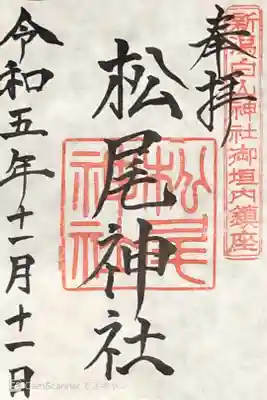 新潟白山神社御垣内鎮座
奉拝
松尾神社
松尾神社
令和五年十一月十一日
CamScanner でスキャン